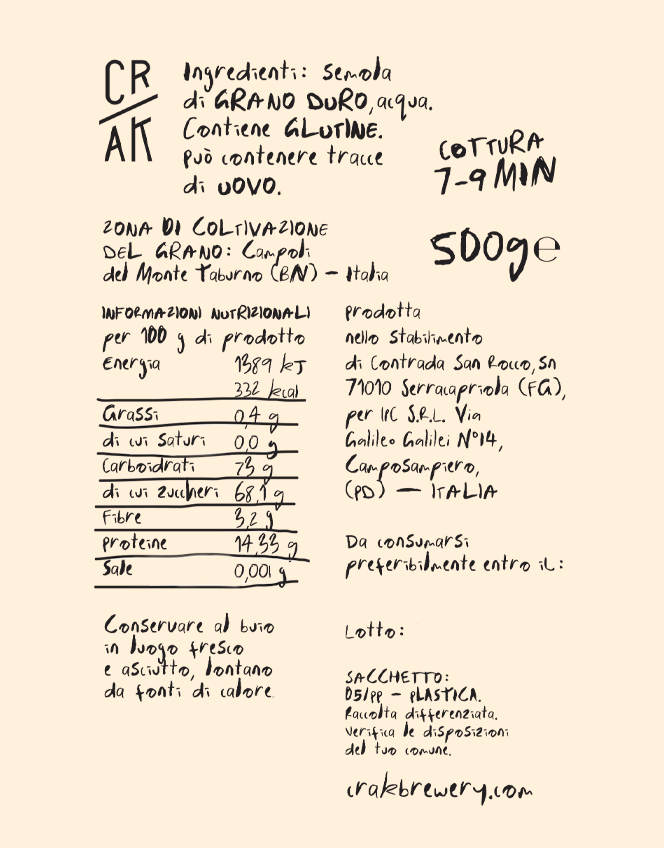 CR
AK
Ingredienti: semola
di GRANO DURO, acqua.
Contiene GLUTINE.
può contenere tracce
di UOVO.
COTTURA
7-9 MIN
ZONA DI COLTIVAZIONE
DEL GRANO: Campoli
del Monte Taburno (BN) – Italia
500g℮
INFORMAZIONI NUTRIZIONALI
per 100 g di prodotto
Energia 1389 kJ
332 kcal
Grassi 0,4 g
di cui saturi 0,0 g
Carboidrati 73 g
di cui zuccheri 68,1 g
Fibre 3,2 g
proteine 14,33 g
Sale 0,001 g
prodotta
nello stabilimento
di Contrada San Rocco, sn
71010 Serracapriola (FG),
per IPC S.R.L. Via
Galileo Galilei N°14,
Camposampiero,
(PD) – ITALIA
Da consumarsi
preferibilmente entro il:
Conservare al buio
in luogo fresco
e asciutto, lontano
da fonti di calore
Lotto:
SACCHETTO:
05/PP – PLASTICA.
Raccolta differenziata.
Verifica le disposizioni
del tuo comune.
crakbrewery.com